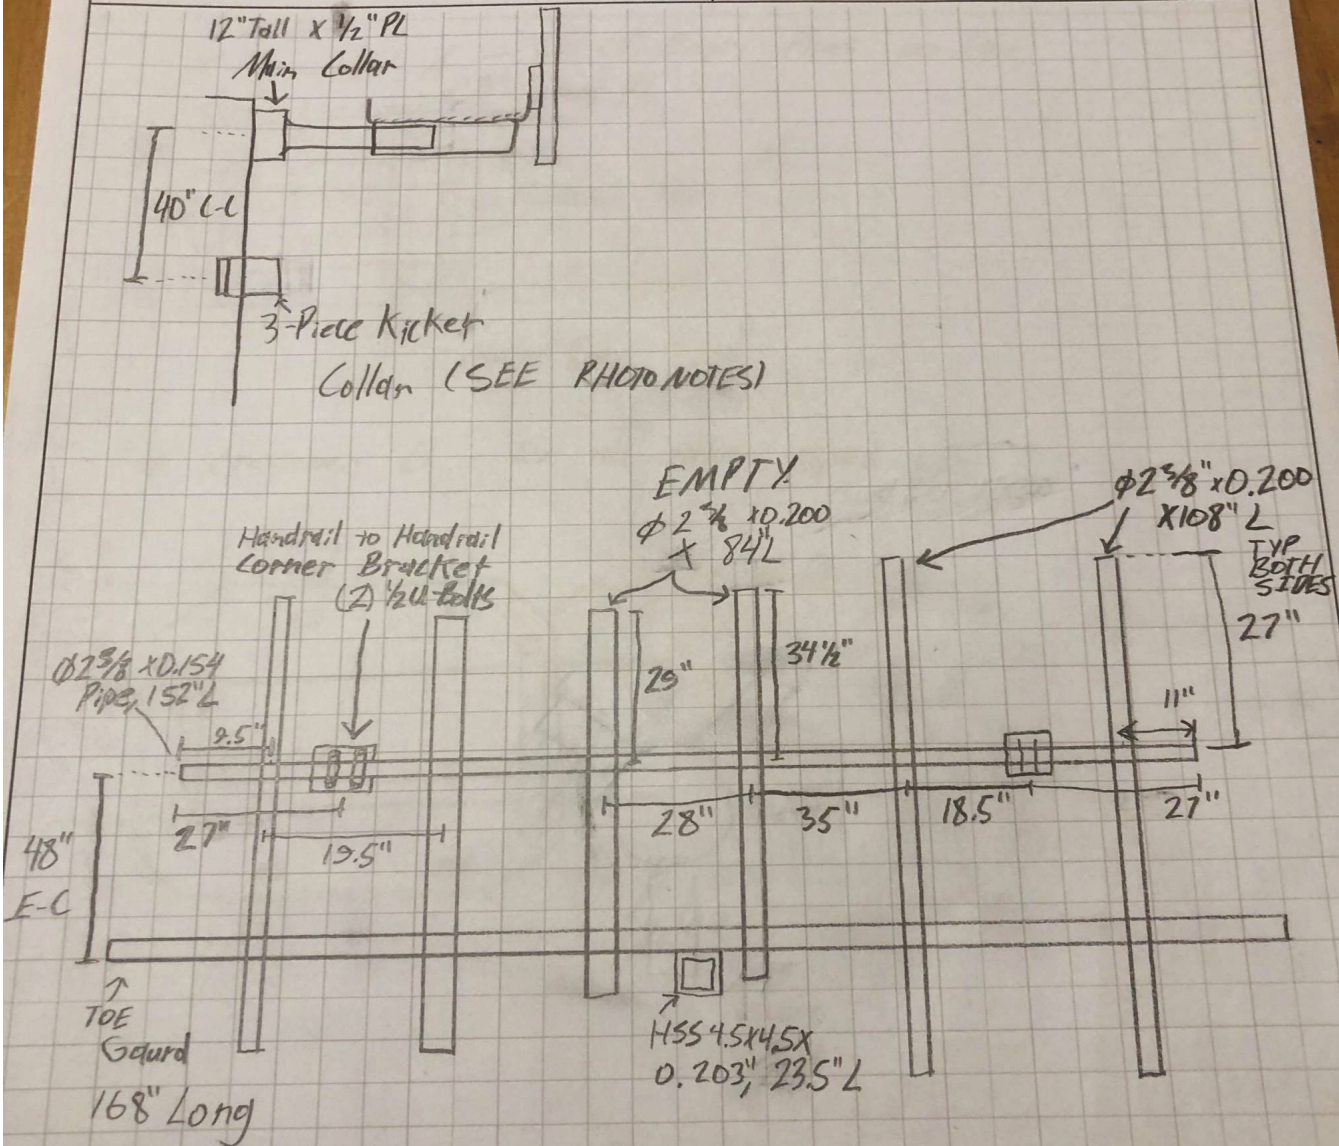 12"Tall x 1/2" PL
Main Collar
40" C-C
3-Piece Kicker
Collar (SEE PHOTO NOTES)
EMPTY
ϕ 2 3/8 x0.200
x 84"L
ϕ2 3/8" x0.200
x108" L
TYP
BOTH
SIDES
Handrail to Handrail
Corner Bracket
(2) 1/2 U-Bolts
ϕ2 3/8 x0.154
Pipe, 152"L
9.5"
29"
34 1/2"
27"
11"
27"
19.5"
28"
35"
18.5"
27"
48"
E-C
TOE
Gaurd
168" Long
HSS 4.5x4.5x
0.203", 23.5"L